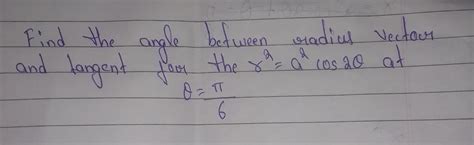 Find the angle between radius vector
and tangent for the r² = a² cos2θ at
θ = π/6